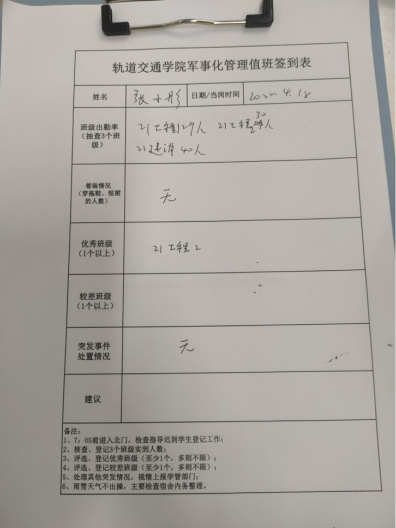 轨道交通学院军事化管理值班签到表
姓名 张 彤 日期/当周时间 4.18
班级出勤率
(抽查3个班级)
21工程1 29人 21工程 30人
21建讲 40人
着装情况
(穿拖鞋、短裙的人数)
无
优秀班级
(1个以上)
21工程2
较差班级
(1个以上)
突发事件
处置情况
无
建议
备注:
1、7:05前进入北门,检查指导迟到学生登记工作;
2、核查、登记3个班级实到人数;
3、评选、登记优秀班级(至少1个,多则不限);
4、评选、登记较差班级(至少1个,多则不限);
5、处理其他突发情况,视情上报学管部门;
6、雨雪天气不出操,主要检查宿舍内务整理。